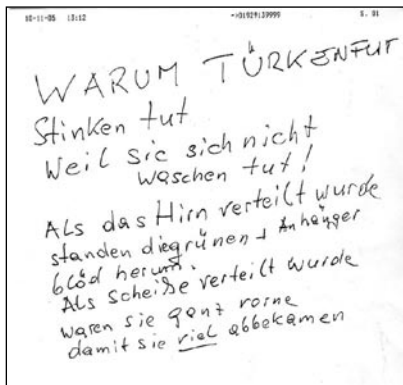 10-11-05 13:12 ->01929139999 S. 01
WARUM TÜRKENFUT
Stinken tut
Weil sie sich nicht
waschen tut!
Als das Hirn verteilt wurde
standen diegrünen + Anhänger
blöd herum.
Als Scheiße verteilt wurde
waren sie ganz vorne
damit sie viel abbekamen